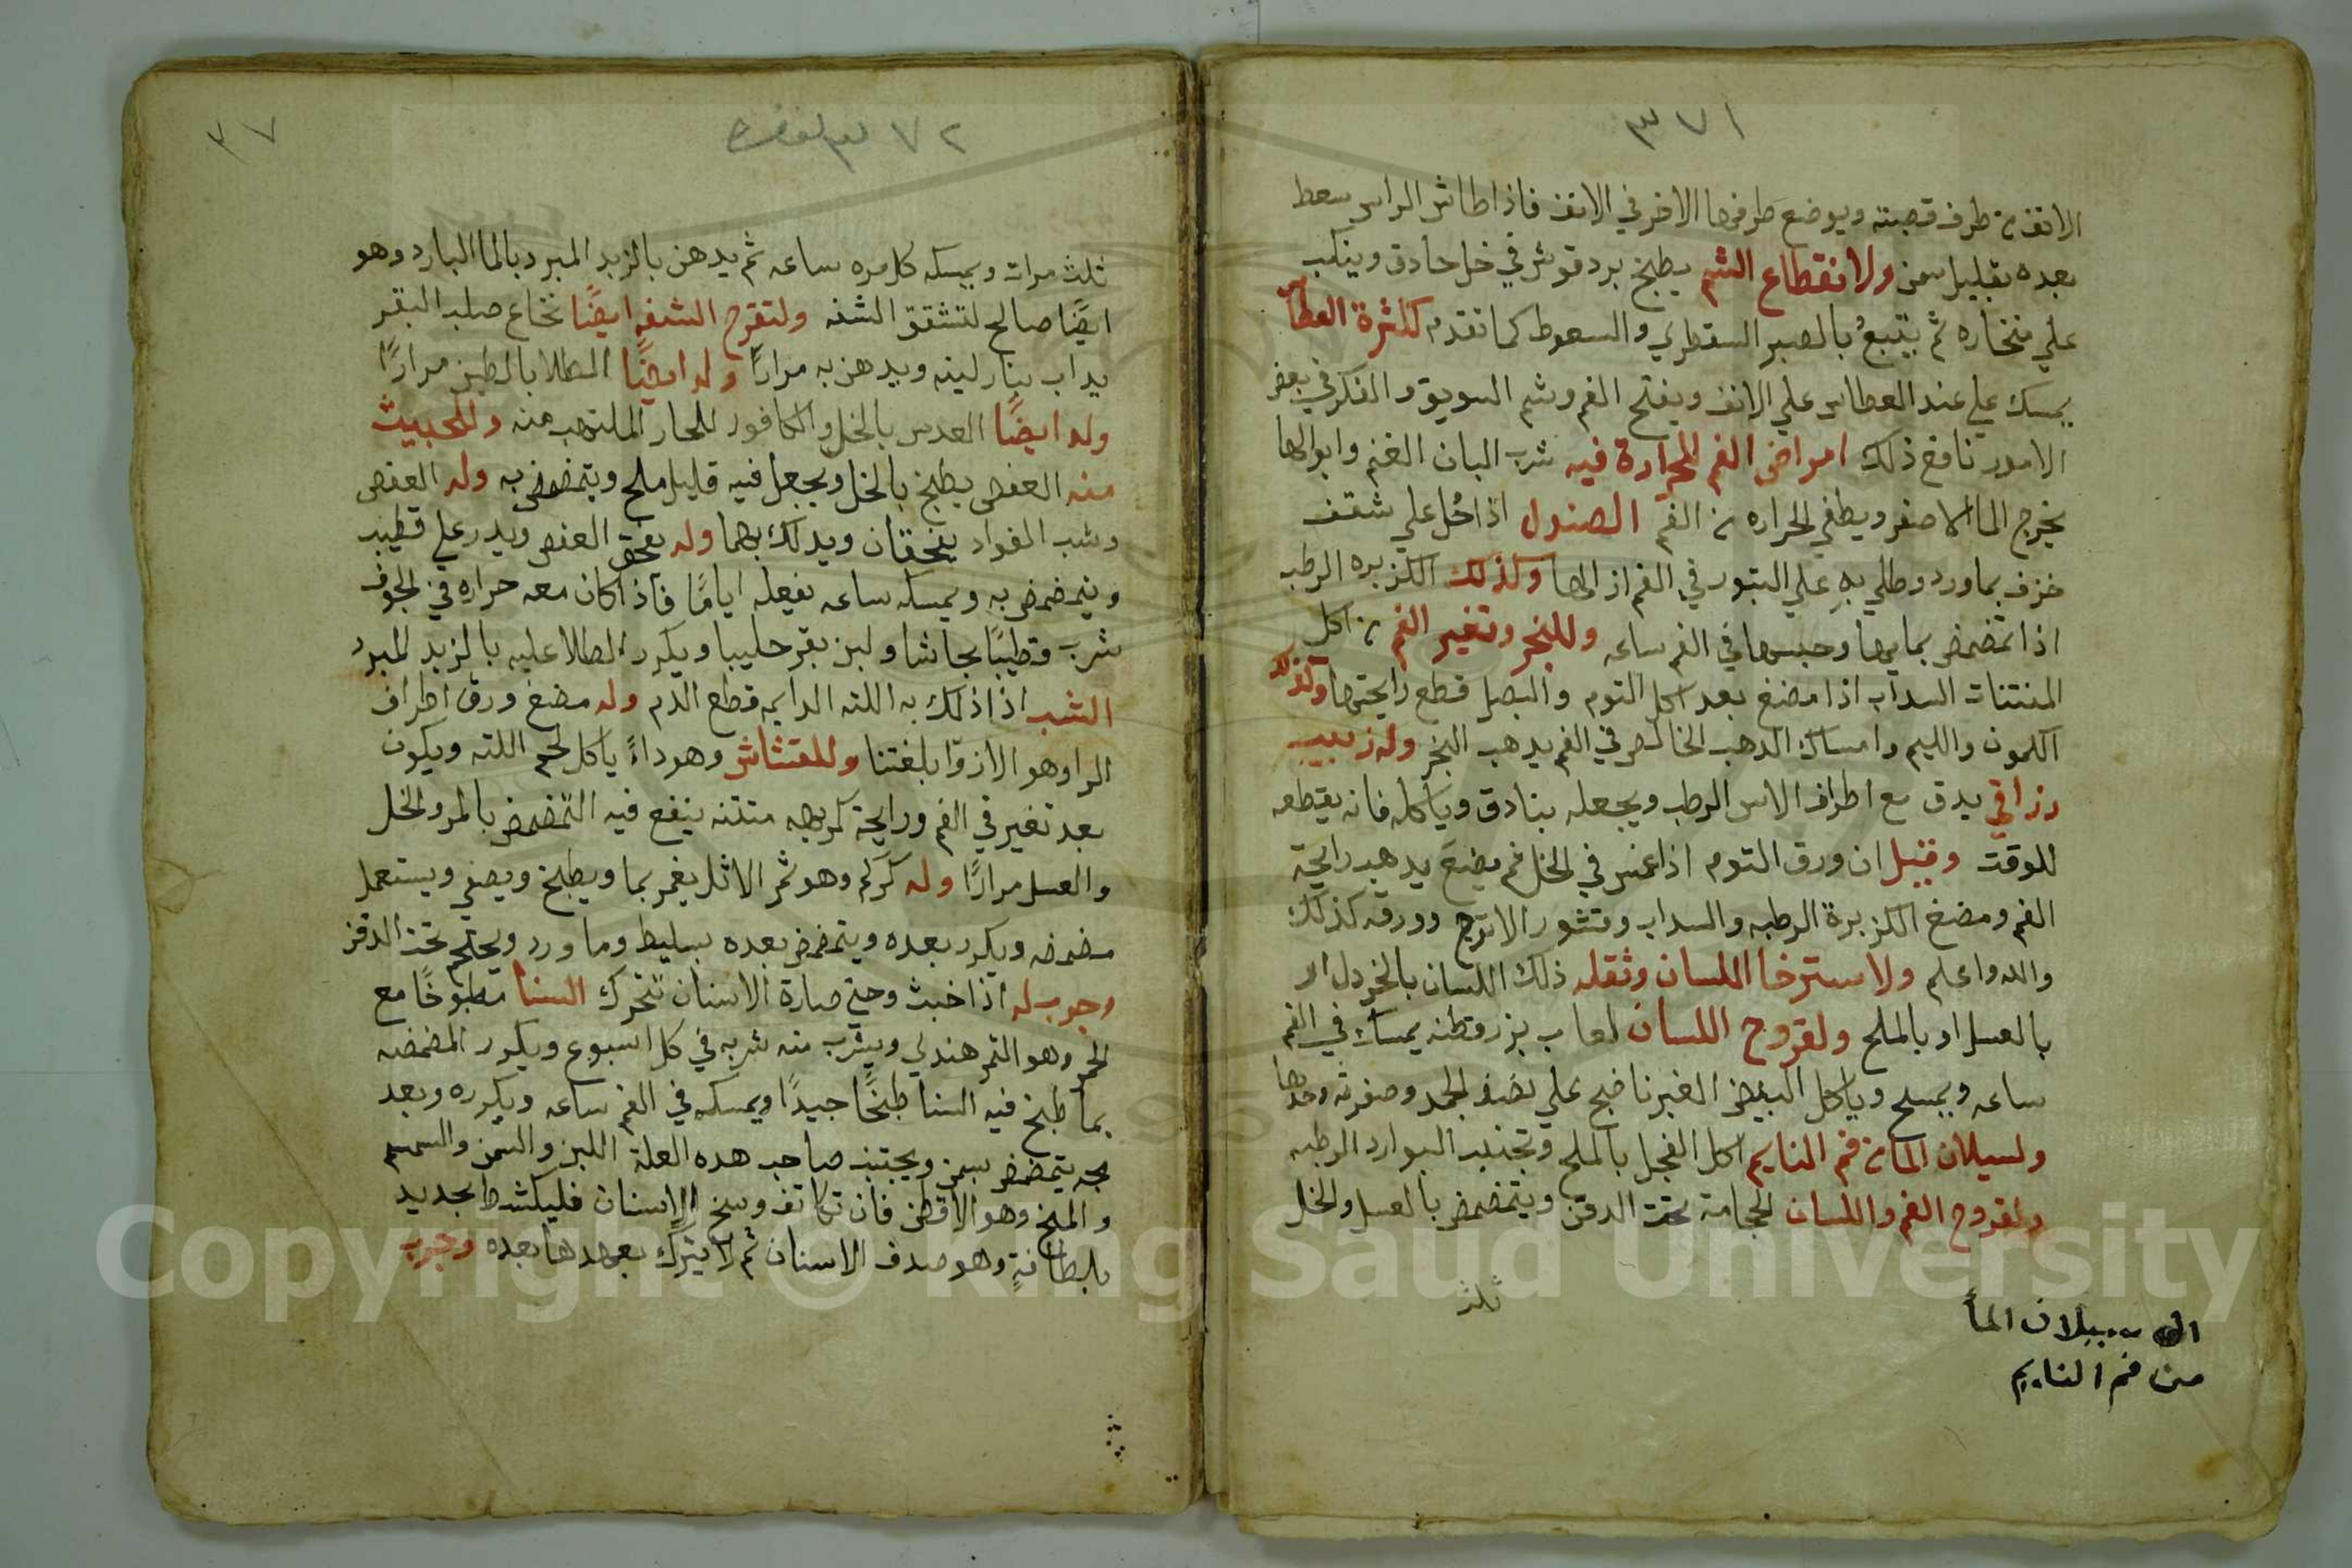 ٣٧١
الانف من طرف قصبته ويوضع طرفها الاخر في الانف فاذا طاش الراس سعط
بعده بقليل سمن ولانقطاع الشم يطبخ بردقوش في خل حادق وينكب
علي منخاره ثم يتبع بالصبر السقطري والسعوط كما تقدم لكثرة العطاس
يمسك علي عند العطاس علي الانف ويفتح الفم وشم السويق والفكر في بعض
الامور نافع ذلك امراض الفم للحرارة فيه شرب البان الغنم وابوالها
يخرج الما الاصفر ويطفي الحراره من الفم الصندل اذا حُل علي شقف
خزف بماورد وطلي به علي البثور في الفم ازالها وكذلك الكزبره الرطب
اذا تمضمض بمايها وحبسها في الفم ساعه وللبخر وتغير الفم من اكل
المنتنات السداب اذا مضغ بعد اكل التوم والبصل قطع رايحتها وكذلك
الكمون والليم وامساك الدهب الخالص في الفم يدهب البخر وله زبيب
رزاقي يدق مع اطراف الاس الرطب ويجعله بنادق وياكله فانه يقطعه
للوقت وقيل ان ورق التوم اذا غمس في الخل ثم يضغ يدهب رايحة
الفم ومضغ الكزبرة الرطبه والسداب وقشور الاترج وورقه كذلك
والله اعلم ولاسترخا اللسان وثقله ذلك اللسان بالخردل او
بالعسل او بالملح ولقروح اللسان لعاب بزرقطنه يمسك في الفم
ساعه ويمسح وياكل البيض الغير ناضج علي نضف الجمد وصفرته وحدها
ولسيلان الما من فم النايم اكل الفجل بالملح وتجنب البوارد الرطبه
ولقروح الفم واللسان الحجامة تحت الدقن ويتمضمض بالعسل والخل
ثلث
سيلان الما
من فم النايم
٣٧٢
٣٧
ثلث مرات ويمسكه كل مره ساعه ثم يدهن بالزبد المبرد بالما البارد وهو
ايضًا صالح لتشقق الشفه ولتقرح الشفه ايضًا نخاع صلب البقر
يداب بنار لينه ويدهن به مرارًا وله ايضًا الطلا بالطين مرارًا
وله ايضًا العدس بالخل والكافور للحار الملتهب منه وللخبيث
منه العفص يطبخ بالخل ويجعل فيه قليل ملح ويتمضمض به وله العفص
وشب الفواد يسحقان ويدلك بهما وله يسحق العفص ويدر علي قطيب
ويتمضمض به ويمسكه ساعه يفعله ايامًا فاذا كان معه حراره في الجوف
شرب قطيبًا بجاشا ولبن بقر حليبا ويكرر الطلا عليه بالزبد المبرد
الشب اذا ذلك به اللثه الدايمه قطع الدم وله مضغ ورق اطراف
الرا وهو الازوا بلغتنا وللقتشاش وهو داءً ياكل لحم اللثه ويكون
بعد تغير في الفم ورايحة كريهه منتنه ينفع فيه التمضمض بالمر والخل
والعسل مرارًا وله كركم وهو ثمر الاثل يغمر بما ويطبخ ويصفي ويستعمل
مضمضه ويكرر بعده ويتمضمض بعده بسليط وماورد ويحتجم تحت الدقن
وجرب له اذا خبث وحتي صارة الاسنان تتحرك السنا مطبوخًا مع
الحمر وهو التمر هندي ويشرب منه شربه في كل اسبوع ويكرر المضمضه
بما طبخ فيه السنا طبخًا جيدًا ويمسكه في الفم ساعه ويكرره وبعد
مجه يتمضمض بسمن ويجتنب صاحب هده العلة اللبن والسمن والسمسم
والملخ وهو الاقطن فان تكاثف وسخ الاسنان فليكشط بحديد
بلطافةٍ وهو صدف الاسنان ثم لا يترك بعهدها بعده وجرب
Copyright © King Saud University